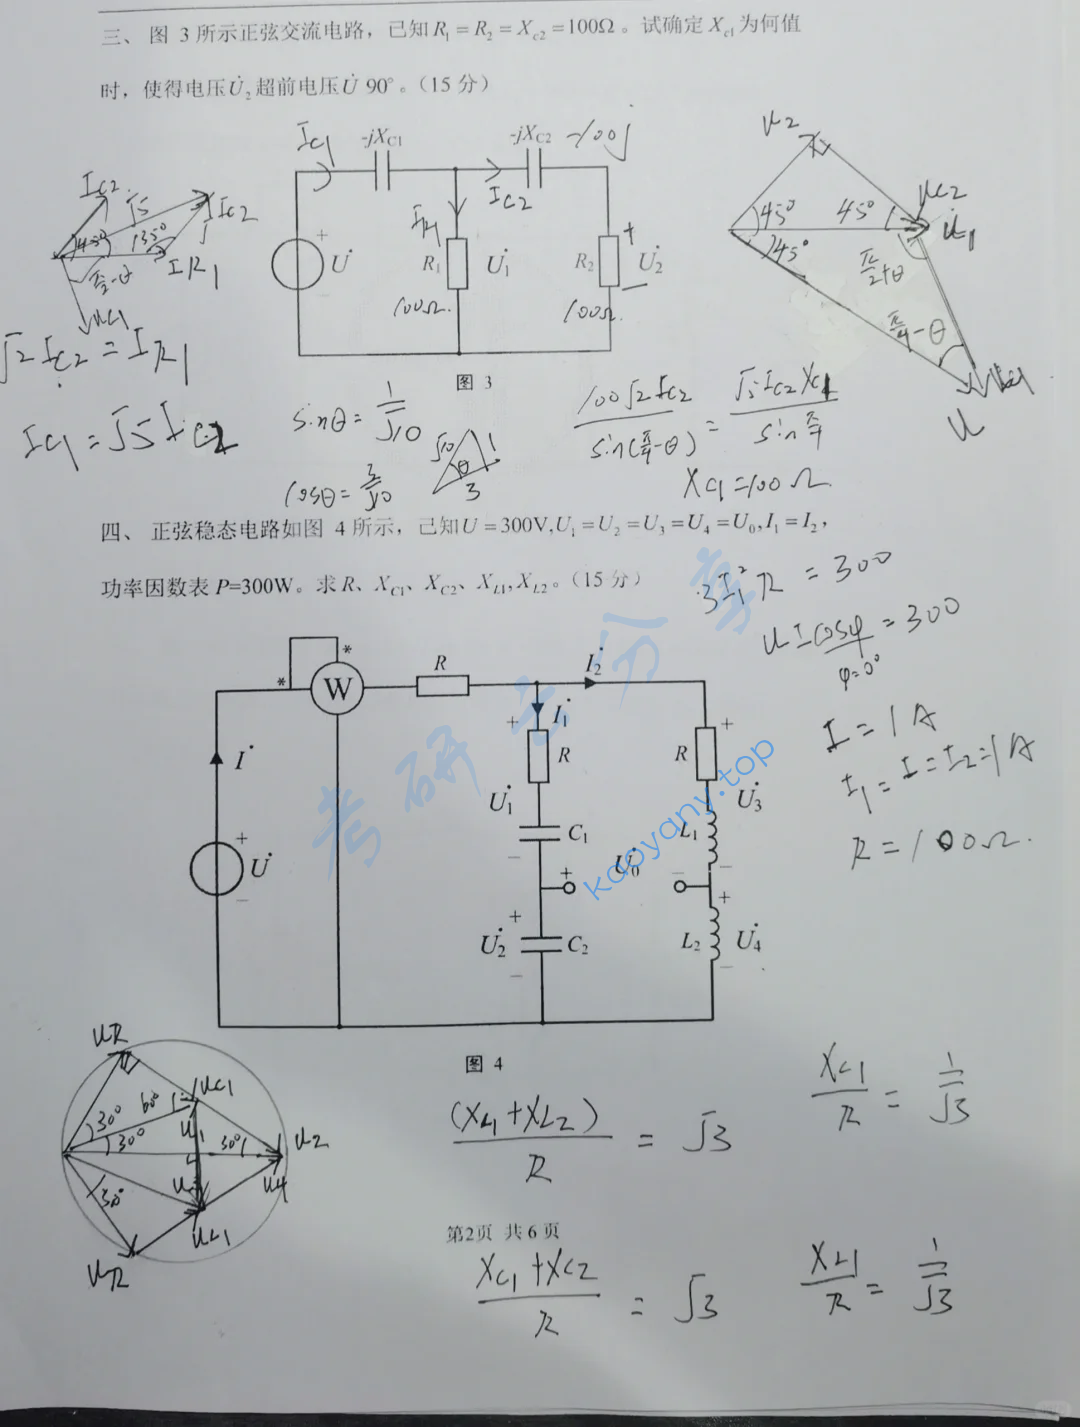 三、 图 3 所示正弦交流电路，已知 R₁ = R₂ = X_c2 =100Ω 。试确定 X_c1 为何值
时，使得电压 U̇₂ 超前电压 U̇ 90° 。（15 分）
I_C1
-jX_C1
-jX_C2
-100j
I_C2
I_R1
+
U̇
R₁
U̇₁
R₂
+
U̇₂
100Ω.
100Ω.
图 3
I_C2
√5
I_C2
45°
135°
I_R1
π/2-θ
U_C1
√2 I_C2 = I_R1
I_C1 = √5 I_C2
U_2
45°
45°
U_C2
U̇_1
45°
π/2+θ
π/4-θ
U_C1
U
sinθ = 1/√10
cosθ = 3/√10
√10
θ
1
3
100√2 I_C2 / sin(π/4-θ) = √5 I_C2 X_C1 / sin π/4
X_C1 = 100Ω
四、 正弦稳态电路如图 4 所示，已知 U = 300V, U₁ = U₂ = U₃ = U₄ = U₀, I₁ = I₂，
功率因数表 P=300W。求 R、X_C1、X_C2、X_L1, X_L2。（15 分）
3I_1² R = 300
UIcosφ = 300
φ=0°
I = 1A
I_1 = I = I_2 = 1A
R = 100Ω.
*
*
W
R
I₂̇
I₁̇
İ
+
R
R
+
U₁̇
C₁
L₁
U₃̇
+
U̇
−
−
+
U₀̇
−
−
+
+
U₂̇
C₂
L₂
U₄̇
−
−
图 4
考研云分享
kaoyany.top
U_R
U_C1
30°
60°
30°
U_1
30°
U_2
U_4
30°
U_L1
U_R
(X_L1 + X_L2)/R = √3
X_C1/R = 1/√3
第2页 共 6 页
X_C1 + X_C2/R = √3
X_L1/R = 1/√3